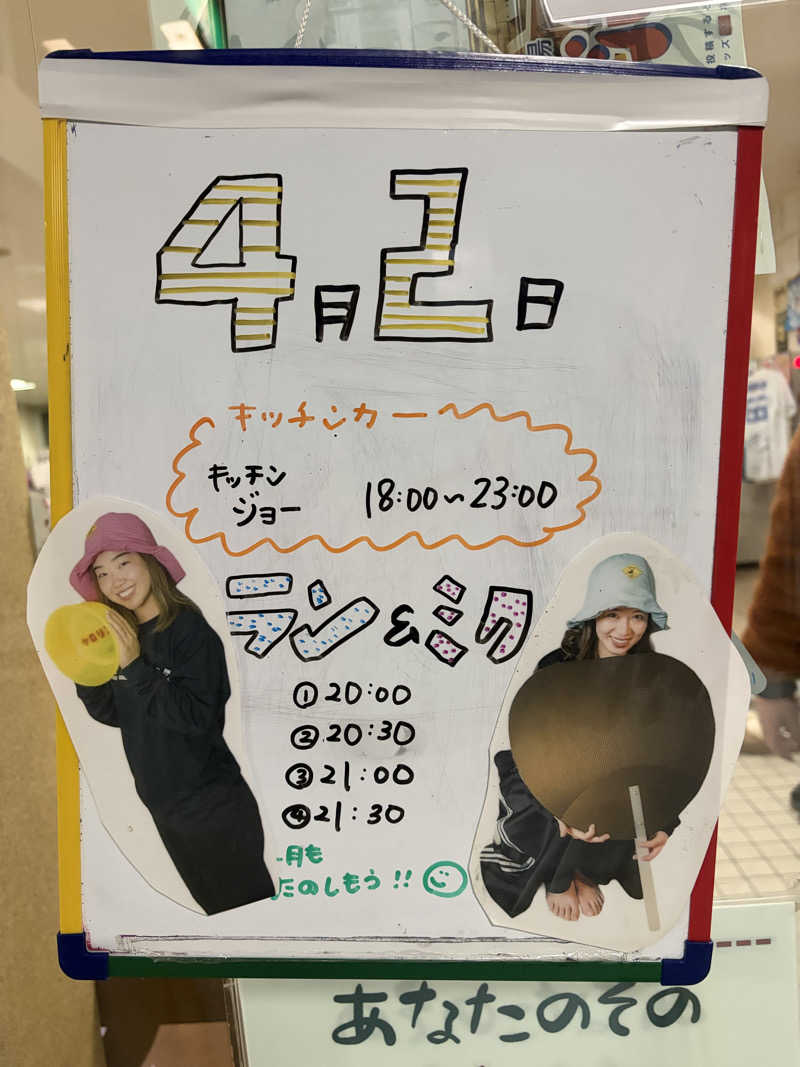 投稿すると
ッズ
4月2日
キッチンカー
キッチン
ジョー 18:00～23:00
ラン&ミク
①20:00
②20:30
③21:00
④21:30
月も
たのしもう!!
あなたのその